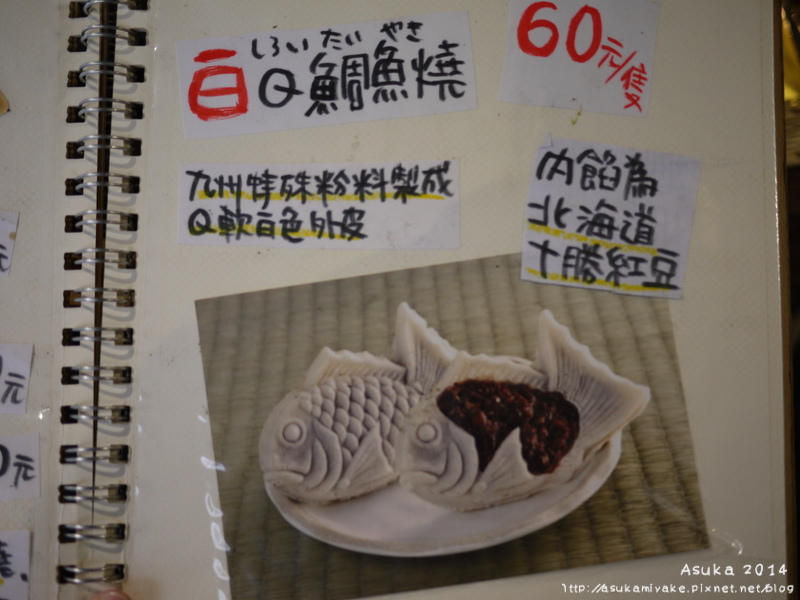 しろい たい やき
白Q鯛魚燒
60元/隻
九州特殊粉料製成
Q軟白色外皮
內餡為
北海道
十勝紅豆
元
元
0元
Asuka 2014
http://asukamiyake.pixnet.net/blog